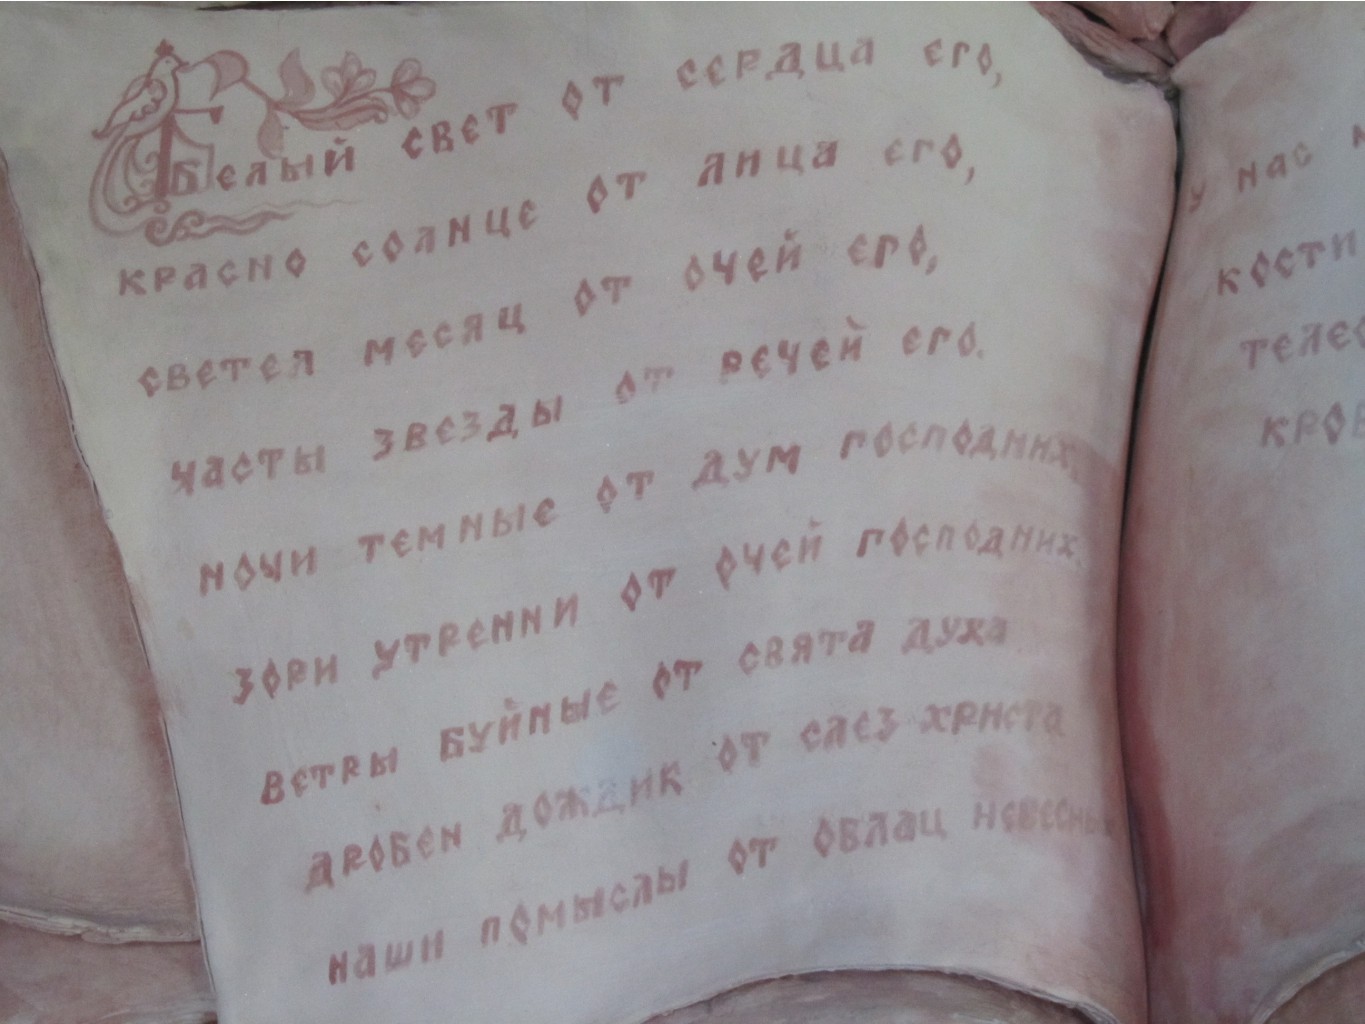 Белый свет от сердца его,
красно солнце от лица его,
светел месяц от очей его,
часты звезды от речей его.
ночи темные от дум господних
зори утренни от очей господних.
ветры буйные от свята духа
дробен дождик от слез христа
наши помыслы от облац
у нас
кости